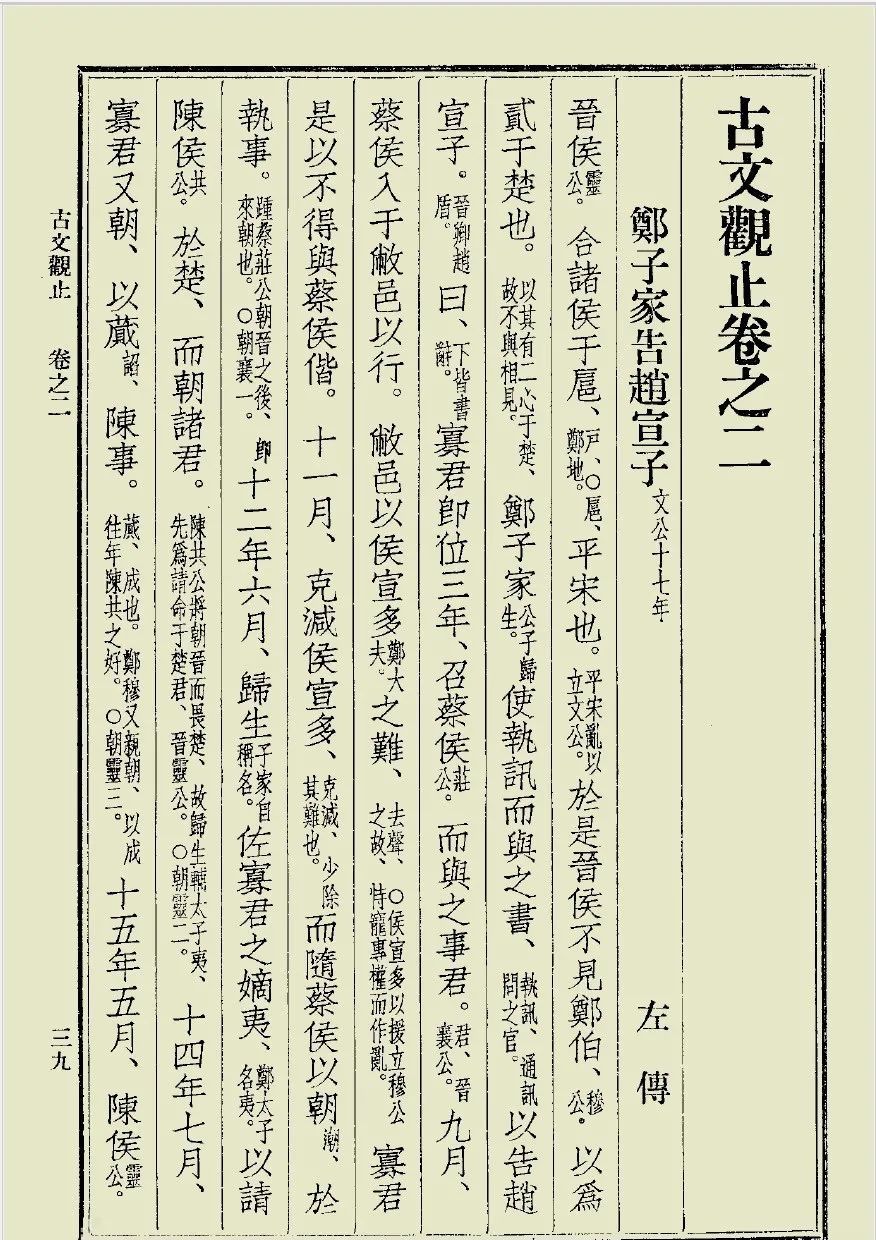 古文觀止卷之二
鄭子家告趙宣子 文公十七年 左傳
晉侯靈公。合諸侯于扈、戶、○扈、鄭地。平宋也。平宋亂以立文公。於是晉侯不見鄭伯、穆公。以爲
貳于楚也。以其有二心于楚、故不與相見。鄭子家公子歸生。使執訊而與之書、執訊、通訊問之官。以告趙
宣子。晉卿趙盾。曰、下皆書辭。寡君卽位三年、召蔡侯莊公。而與之事君。君、晉襄公。九月、
蔡侯入于敝邑以行。敝邑以侯宣多鄭大夫。之難、去聲、○侯宣多以援立穆公之故、恃寵專權而作亂。寡君
是以不得與蔡侯偕。十一月、克減侯宣多、克減、少除其難也。而隨蔡侯以朝潮、於
執事。踵蔡莊公朝晉之後、卽來朝也。○朝襄一。十二年六月、歸生子家自稱名。佐寡君之嫡夷、鄭太子名夷。以請
陳侯共公。於楚、而朝諸君。陳共公將朝晉而畏楚、故歸生輔太子夷、先爲請命于楚君、晉靈公。○朝靈二。十四年七月、
寡君又朝、以蕆諂、陳事。蕆、成也。鄭穆又親朝、以成往年陳共之好。○朝靈三。十五年五月、陳侯靈公。
古文觀止 卷之二 三九